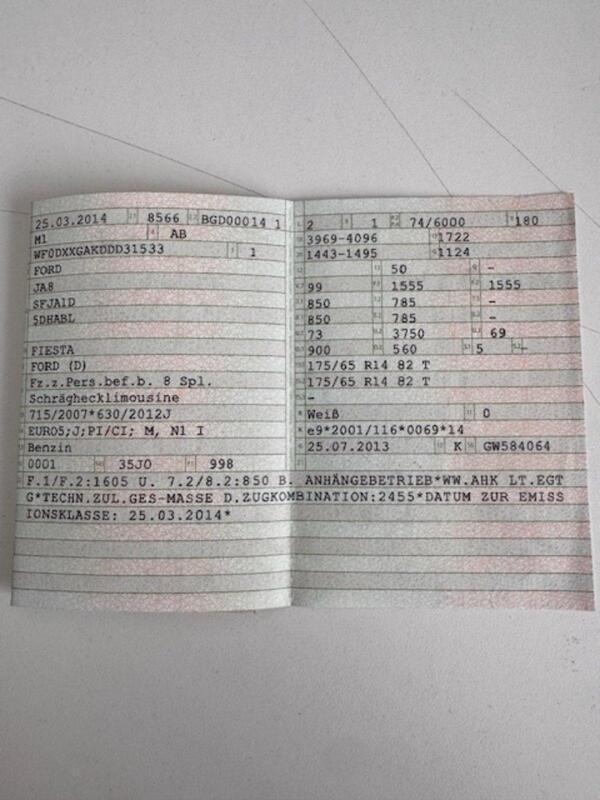 25.03.2014 8566 BGD00014 1
M1 AB
WF0DXXGAKDDD31533 1
FORD
JA8
SFJA1D
5DHABL
FIESTA
FORD (D)
Fz.z.Pers.bef.b. 8 Spl.
Schräghecklimousine
715/2007*630/2012J
EURO5;J;PI/CI; M, N1 I
Benzin
0001 35J0 998
2 1 74/6000 180
3969-4096 1722
1443-1495 1124
- 50 -
99 1555 1555
850 785 -
850 785 -
73 3750 69
900 560 5 -
175/65 R14 82 T
175/65 R14 82 T
-
Weiß 0
e9*2001/116*0069*14
25.07.2013 K GW584064
F.1/F.2:1605 U. 7.2/8.2:850 B. ANHÄNGEBETRIEB*WW.AHK LT.EGT
G*TECHN.ZUL.GES-MASSE D.ZUGKOMBINATION:2455*DATUM ZUR EMISS
IONSKLASSE: 25.03.2014*